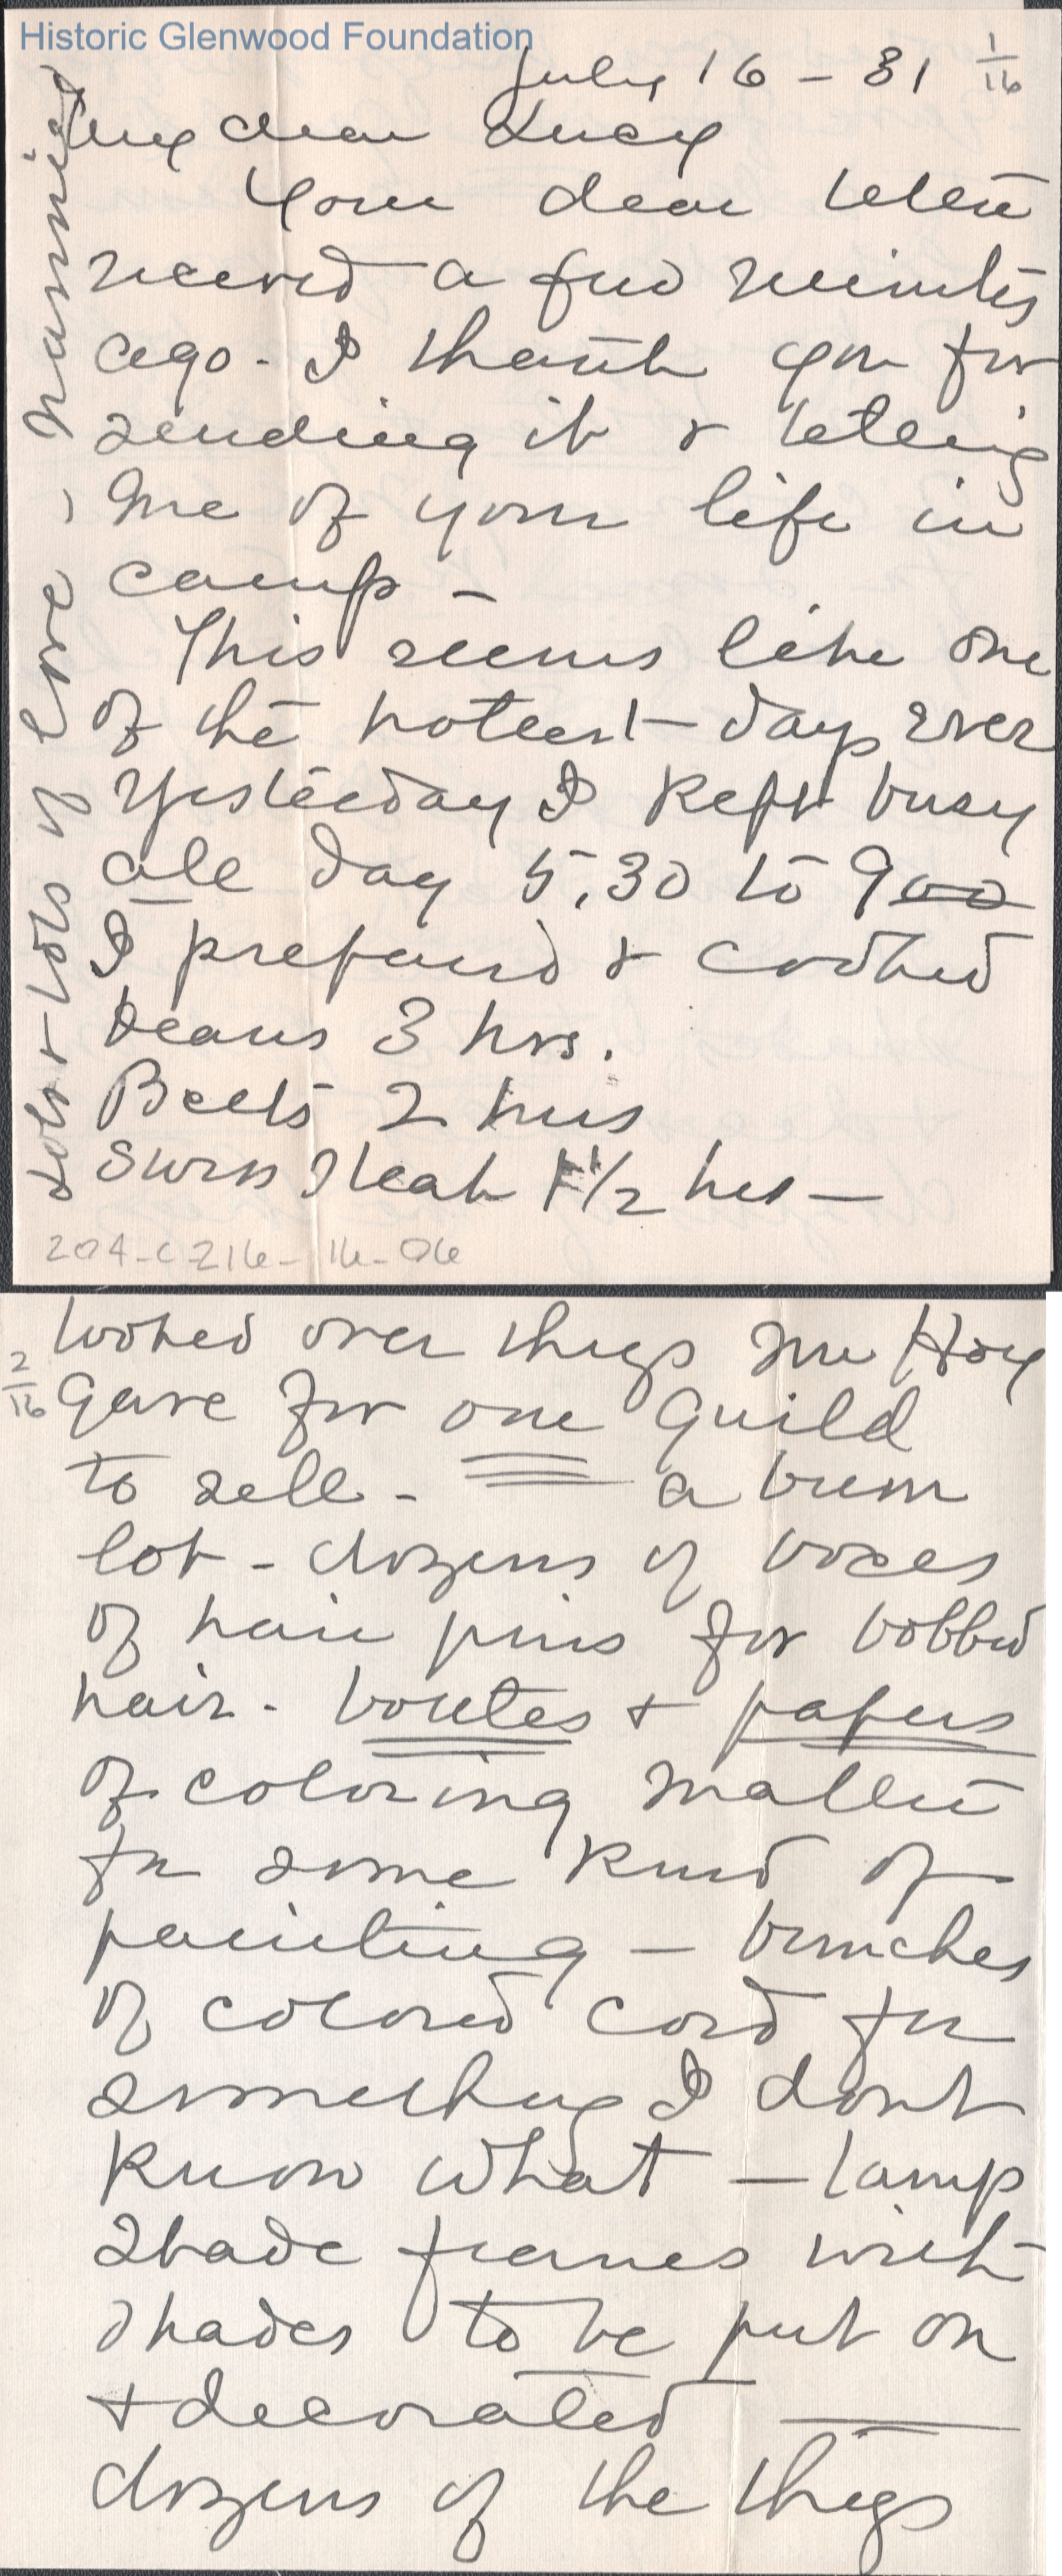 Historic Glenwood Foundation
July 16 - 31 1/16
My dear Lucy
Your dear letter
received a few minutes
ago - I thank you for
sending it & telling
me of your life in
camp -
This seems like one
of the hottest days ever
Yesterday I kept busy
all day 5.30 to 900
I prepared & cooked
beans 3 hrs.
Beets 2 hrs
Swiss Steak 1 1/2 hrs -
Lots & lots of love, Mammied
204-C216-16-06
2/16
looked over things Mrs Hoy
gave for our Guild
to sell - a bum
lot - dozens of boxes
of hair pins for bobbed
hair - bottles + papers
of coloring matter
for some kind of
painting - bunches
of colored cord for
something I dont
know what - lamp
shade frames with
shades to be put on
+ decorated
dozens of the things